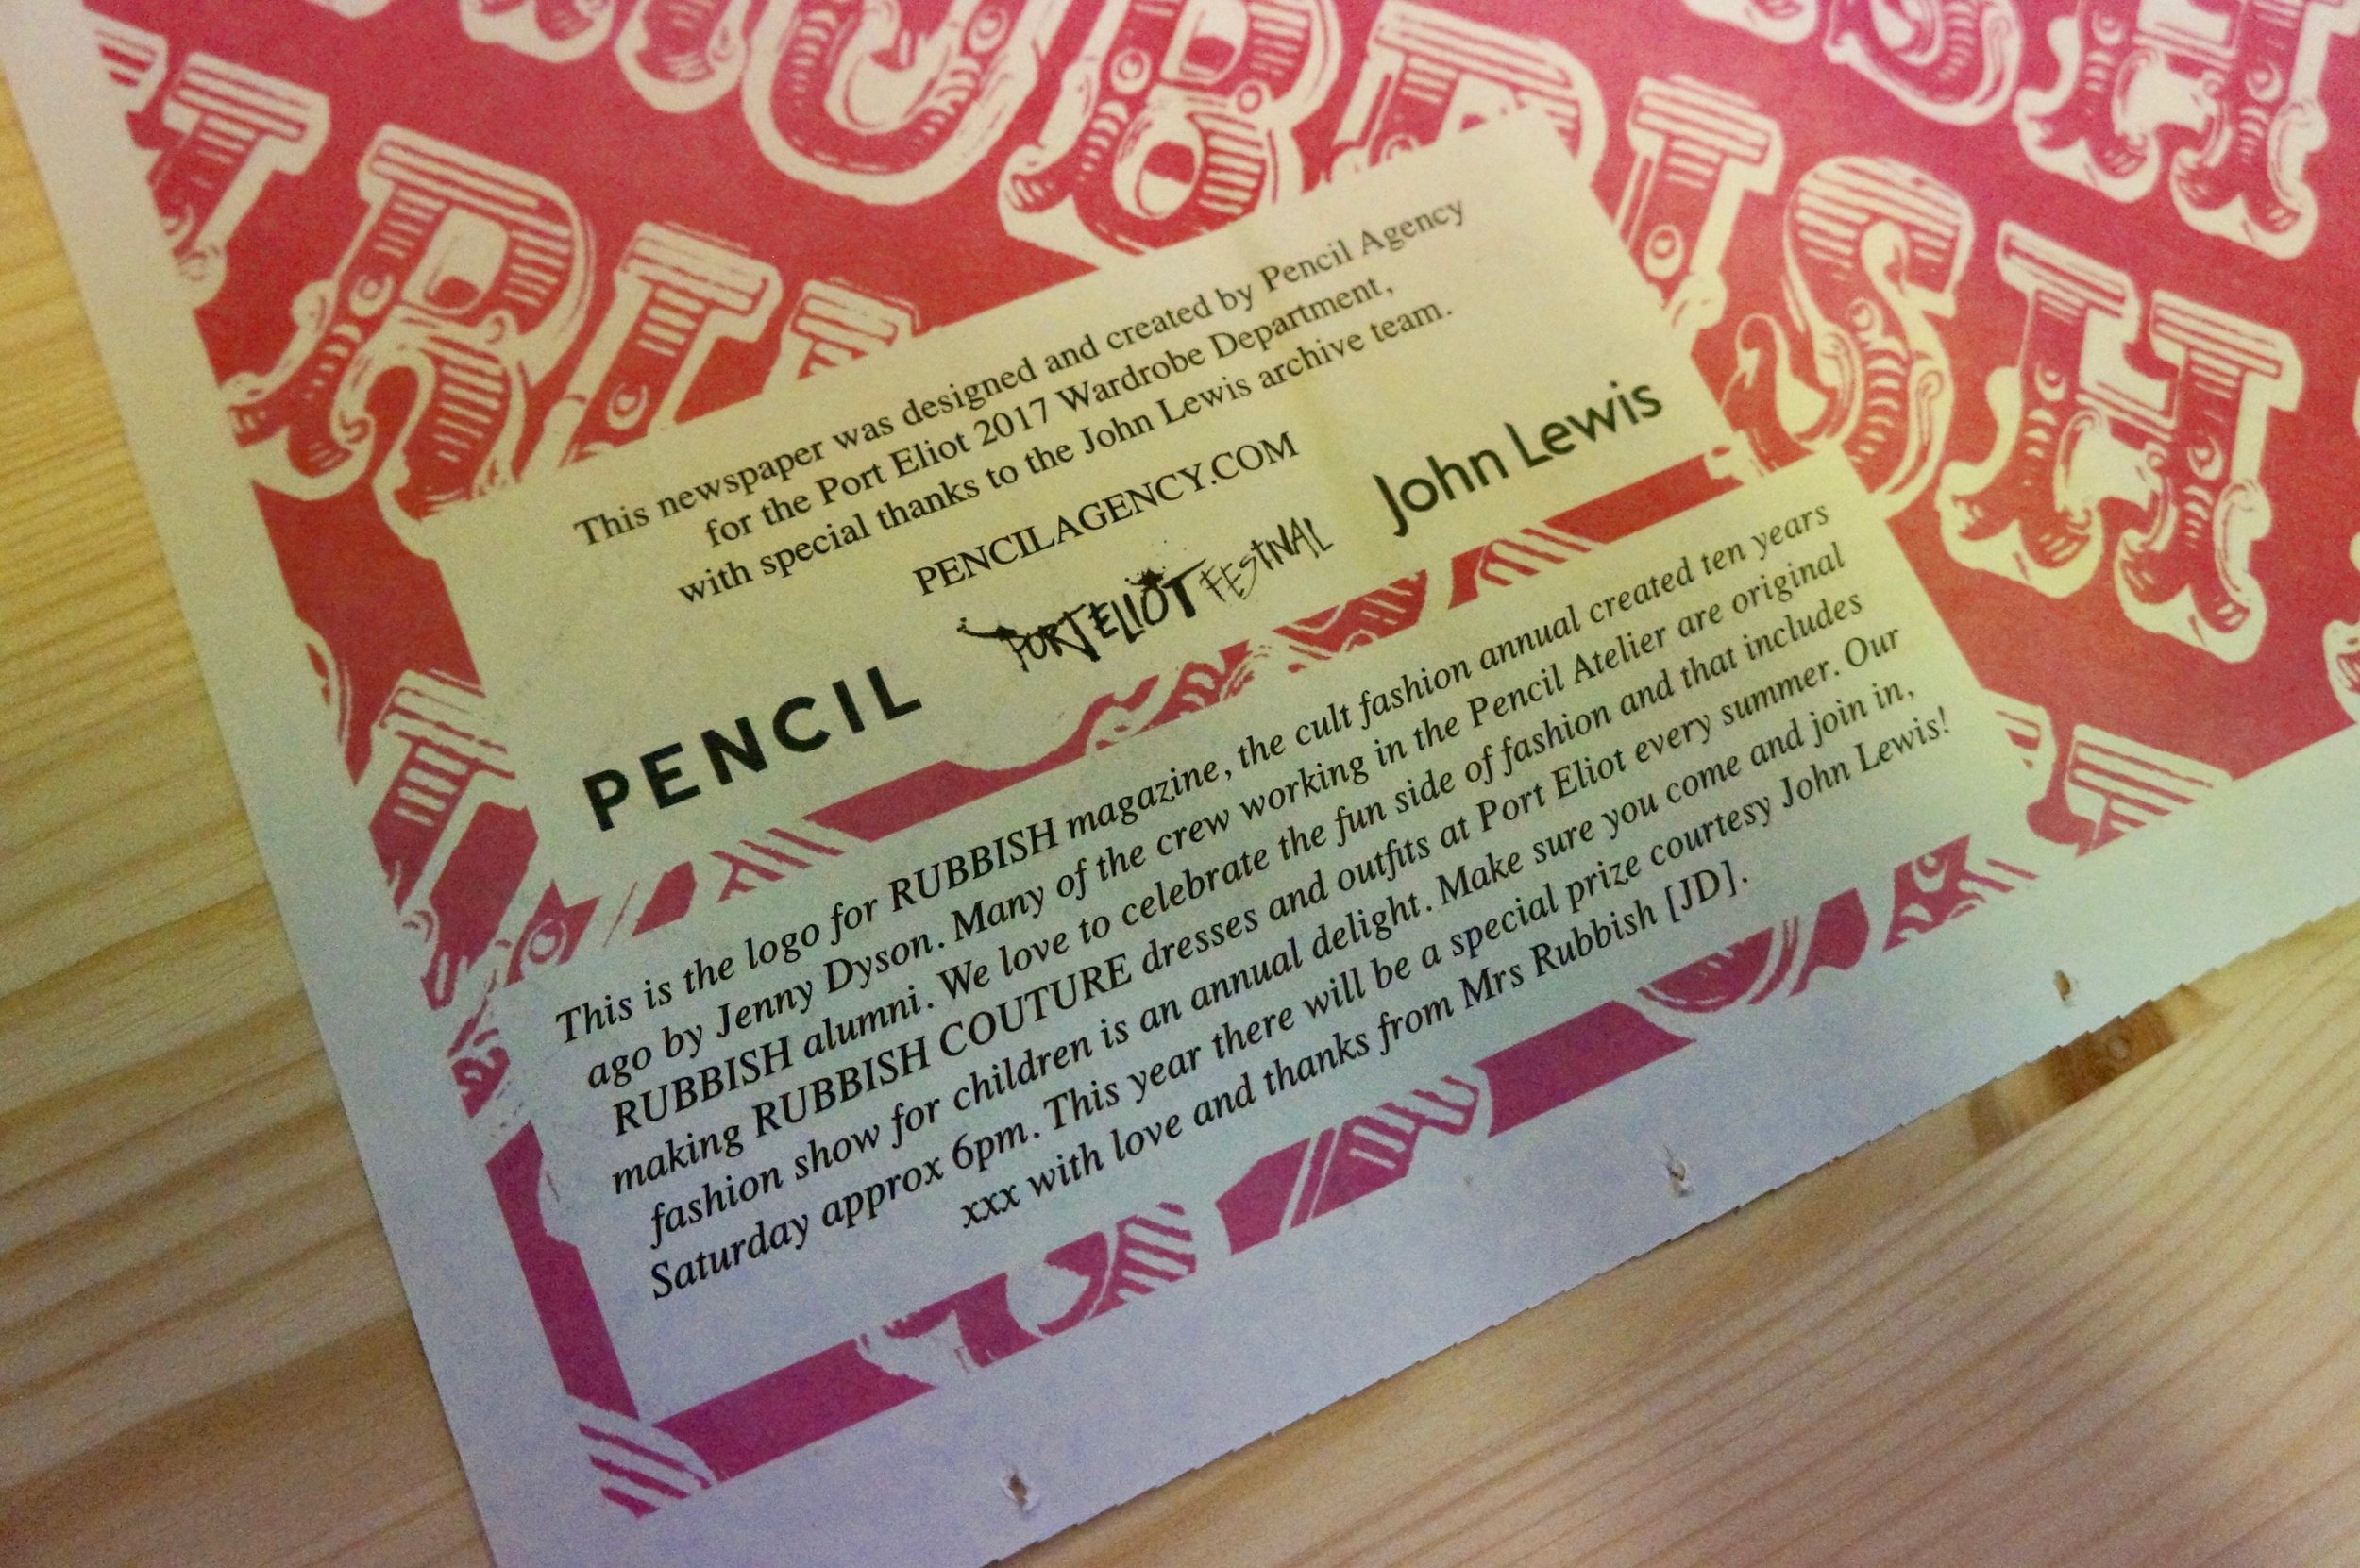 RUBBISH
This newspaper was designed and created by Pencil Agency
for the Port Eliot 2017 Wardrobe Department,
with special thanks to the John Lewis archive team.
PENCILAGENCY.COM
PENCIL
PORT ELIOT FESTIVAL
John Lewis
This is the logo for RUBBISH magazine, the cult fashion annual created ten years
ago by Jenny Dyson. Many of the crew working in the Pencil Atelier are original
RUBBISH alumni. We love to celebrate the fun side of fashion and that includes
making RUBBISH COUTURE dresses and outfits at Port Eliot every summer. Our
fashion show for children is an annual delight. Make sure you come and join in,
Saturday approx 6pm. This year there will be a special prize courtesy John Lewis!
xxx with love and thanks from Mrs Rubbish [JD].